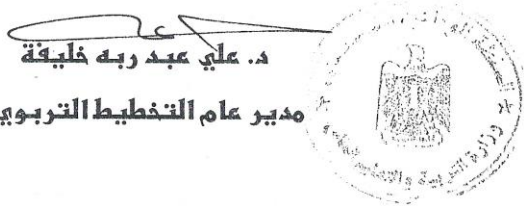 د. علي عبد ربه خليفة
مدير عام التخطيط التربوي
وزارة التربية والتعليم